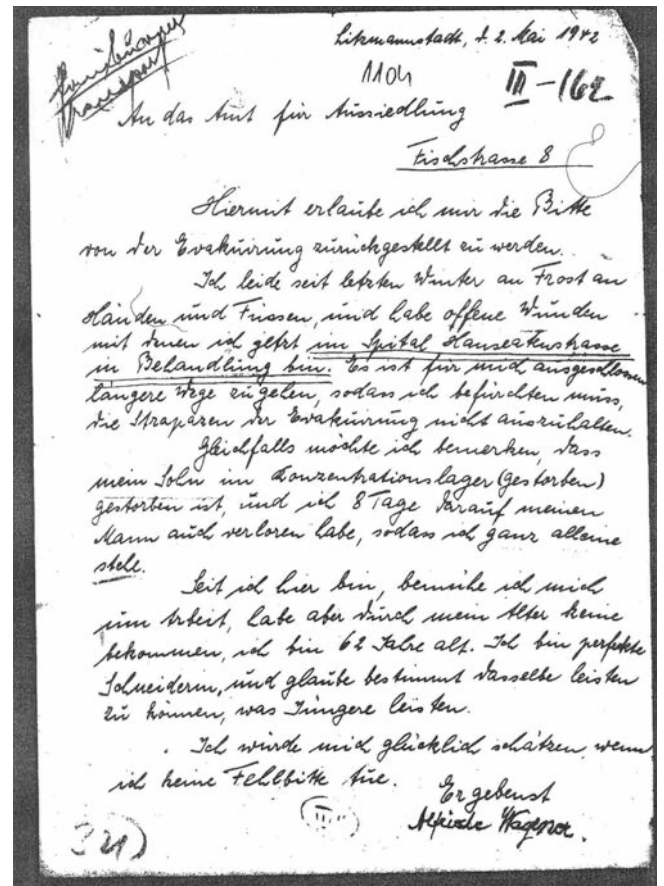 Litzmannstadt, d. 2. Mai 1942
1104
III - 162
An das Amt für Aussiedlung
Fischstrasse 8
Hiermit erlaube ich mir die Bitte
von der Evakuirung zurückgestellt zu werden.
Ich leide seit letzten Winter an Frost an
Händen und Füssen, und habe offene Wunden
mit denen ich jetzt im Spital Hanseatenstrasse
in Behandlung bin. Es ist für mich ausgeschlossen
längere Wege zu gehen, sodass ich befürchten muss,
die Strapazen der Evakuirung nicht auszuhalten.
Gleichfalls möchte ich bemerken, dass
mein Sohn im Konzentrationslager (gestorben)
gestorben ist, und ich 8 Tage darauf meinen
Mann auch verloren habe, sodass ich ganz alleine
stehe.
Seit ich hier bin, bemühe ich mich
um Arbeit, habe aber durch mein Alter keine
bekommen, ich bin 62 Jahre alt. Ich bin perfekte
Schneiderin, und glaube bestimmt dasselbe leisten
zu können, was Jüngere leisten.
Ich würde mich glücklich schätzen, wenn
ich keine Fehlbitte tue.
Ergebenst
Wagner.
321)